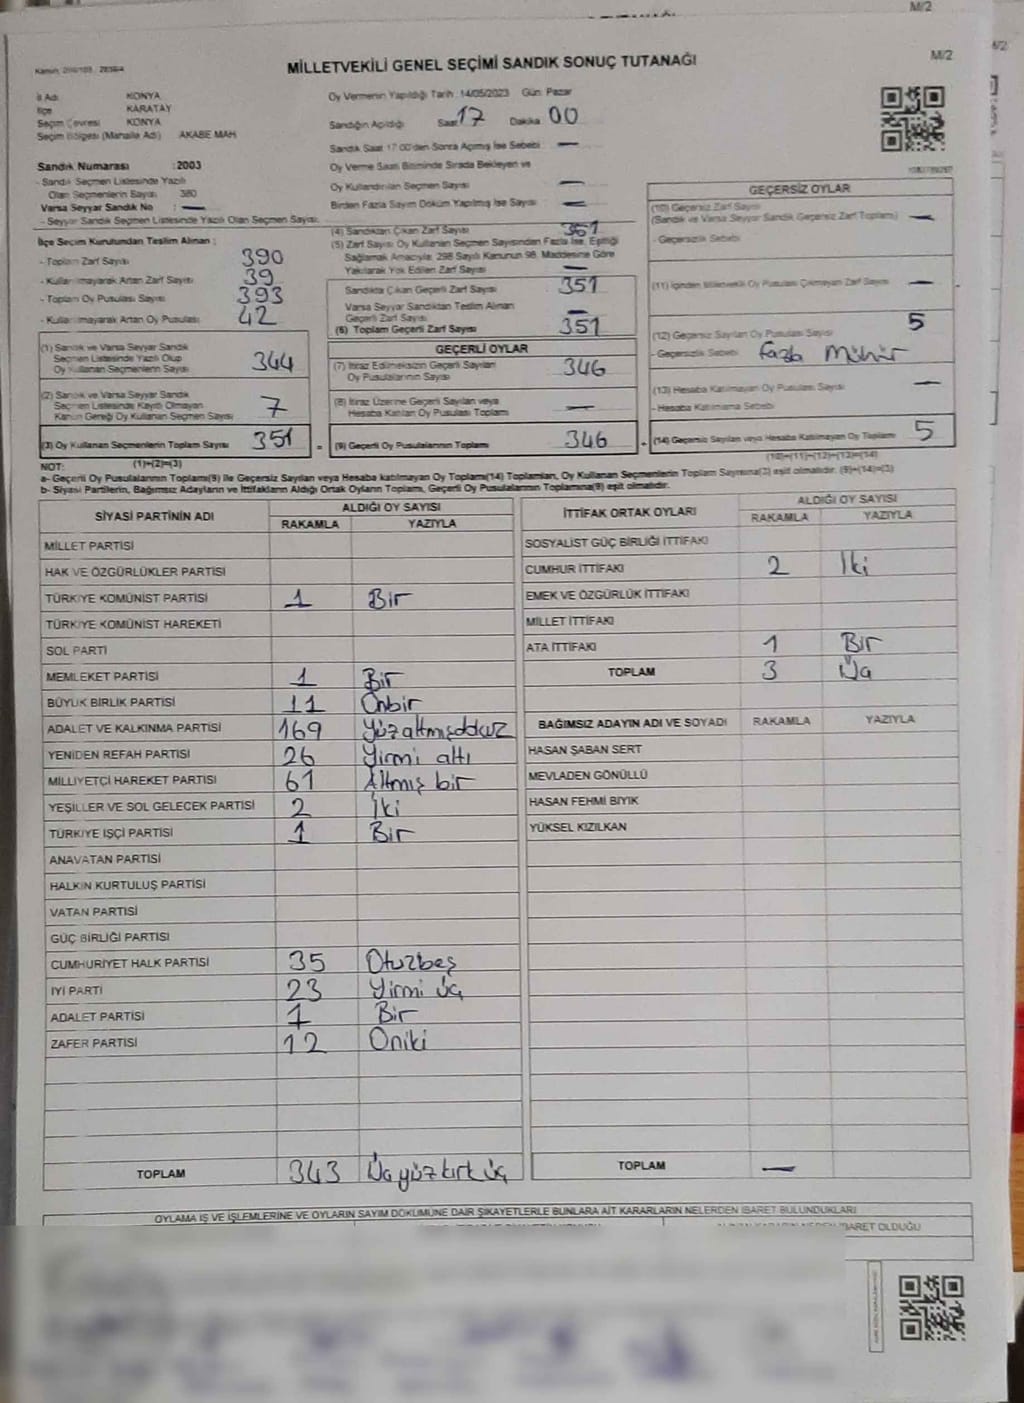 M/2
M/2
MİLLETVEKİLİ GENEL SEÇİMİ SANDIK SONUÇ TUTANAĞI
İl Adı KONYA
İlçe KARATAY
Seçim Çevresi KONYA
Seçim Bölgesi (Mahalle Adı) AKABE MAH
Oy Vermenin Yapıldığı Tarih : 14/05/2023 Gün: Pazar
Sandığın Açıldığı Saat 17 Dakika 00
Sandık Saat 17:00'den Sonra Açılmış İse Sebebi —
Oy Verme Saati Bitiminde Sırada Bekleyen ve
Oy Kullandırılan Seçmen Sayısı —
Birden Fazla Sayım Döküm Yapılmış İse Sayısı —
Sandık Numarası : 2003
- Sandık Seçmen Listesinde Yazılı
Olan Seçmenlerin Sayısı 380
Varsa Seyyar Sandık No : —
- Seyyar Sandık Seçmen Listesinde Yazılı Olan Seçmen Sayısı:
İlçe Seçim Kurulundan Teslim Alınan :
- Toplam Zarf Sayısı 390
- Kullanılmayarak Artan Zarf Sayısı 39
- Toplam Oy Pusulası Sayısı 393
- Kullanılmayarak Artan Oy Pusulası 42
(1) Sandık ve Varsa Seyyar Sandık
Seçmen Listesinde Yazılı Olup
Oy Kullanan Seçmenlerin Sayısı 344
(2) Sandık ve Varsa Seyyar Sandık
Seçmen Listesinde Kayıtlı Olmayan
Kanun Gereği Oy Kullanan Seçmen Sayısı 7
(3) Oy Kullanan Seçmenlerin Toplam Sayısı 351
(4) Sandıktan Çıkan Zarf Sayısı 351
(5) Zarf Sayısı Oy Kullanan Seçmen Sayısından Fazla İse, Eşitliği
Sağlamak Amacıyla, 298 Sayılı Kanunun 98. Maddesine Göre
Yakılarak Yok Edilen Zarf Sayısı —
Sandıkta Çıkan Geçerli Zarf Sayısı 351
Varsa Seyyar Sandıktan Teslim Alınan
Geçerli Zarf Sayısı —
(6) Toplam Geçerli Zarf Sayısı 351
GEÇERLİ OYLAR
(7) İtiraz Edilmeksizin Geçerli Sayılan
Oy Pusulalarının Sayısı 346
(8) İtiraz Üzerine Geçerli Sayılan veya
Hesaba Katılan Oy Pusulası Toplamı —
= (9) Geçerli Oy Pusulalarının Toplamı 346
GEÇERSİZ OYLAR
(10) Geçersiz Zarf Sayısı
(Sandık ve Varsa Seyyar Sandık Geçersiz Zarf Toplamı) —
- Geçersizlik Sebebi
(11) İçinden Milletvekili Oy Pusulası Çıkmayan Zarf Sayısı —
(12) Geçersiz Sayılan Oy Pusulası Sayısı 5
- Geçersizlik Sebebi Fazla Mühür
(13) Hesaba Katılmayan Oy Pusulası Sayısı —
- Hesaba Katılmama Sebebi
+ (14) Geçersiz Sayılan veya Hesaba Katılmayan Oy Toplamı 5
NOT: (1)+(2)=(3)
(10)+(11)+(12)+(13)=(14)
a- Geçerli Oy Pusulalarının Toplamı(9) ile Geçersiz Sayılan veya Hesaba katılmayan Oy Toplamı(14) Toplamları, Oy Kullanan Seçmenlerin Toplam Sayısına(3) eşit olmalıdır. (9)+(14)=(3)
b- Siyasi Partilerin, Bağımsız Adayların ve İttifakların Aldığı Ortak Oyların Toplamı, Geçerli Oy Pusulalarının Toplamına(9) eşit olmalıdır.
SİYASİ PARTİNİN ADI ALDIĞI OY SAYISI
RAKAMLA YAZIYLA
MİLLET PARTİSİ
HAK VE ÖZGÜRLÜKLER PARTİSİ
TÜRKİYE KOMÜNİST PARTİSİ 1 Bir
TÜRKİYE KOMÜNİST HAREKETİ
SOL PARTİ
MEMLEKET PARTİSİ 1 Bir
BÜYÜK BİRLİK PARTİSİ 11 Onbir
ADALET VE KALKINMA PARTİSİ 169 Yüzaltmışdokuz
YENİDEN REFAH PARTİSİ 26 Yirmi altı
MİLLİYETÇİ HAREKET PARTİSİ 61 Altmış bir
YEŞİLLER VE SOL GELECEK PARTİSİ 2 İki
TÜRKİYE İŞÇİ PARTİSİ 1 Bir
ANAVATAN PARTİSİ
HALKIN KURTULUŞ PARTİSİ
VATAN PARTİSİ
GÜÇ BİRLİĞİ PARTİSİ
CUMHURİYET HALK PARTİSİ 35 Otuzbeş
İYİ PARTİ 23 Yirmi üç
ADALET PARTİSİ 1 Bir
ZAFER PARTİSİ 12 Oniki
TOPLAM 343 Üçyüzkırküç
İTTİFAK ORTAK OYLARI ALDIĞI OY SAYISI
RAKAMLA YAZIYLA
SOSYALİST GÜÇ BİRLİĞİ İTTİFAKI
CUMHUR İTTİFAKI 2 İki
EMEK VE ÖZGÜRLÜK İTTİFAKI
MİLLET İTTİFAKI
ATA İTTİFAKI 1 Bir
TOPLAM 3 Üç
BAĞIMSIZ ADAYIN ADI VE SOYADI RAKAMLA YAZIYLA
HASAN ŞABAN SERT
MEVLADEN GÖNÜLLÜ
HASAN FEHMİ BIYIK
YÜKSEL KIZILKAN
TOPLAM —
OYLAMA İŞ VE İŞLEMLERİNE VE OYLARIN SAYIM DÖKÜMÜNE DAİR ŞİKAYETLERLE BUNLARA AİT KARARLARIN NELERDEN İBARET BULUNDUKLARI
İBARET OLDUĞU